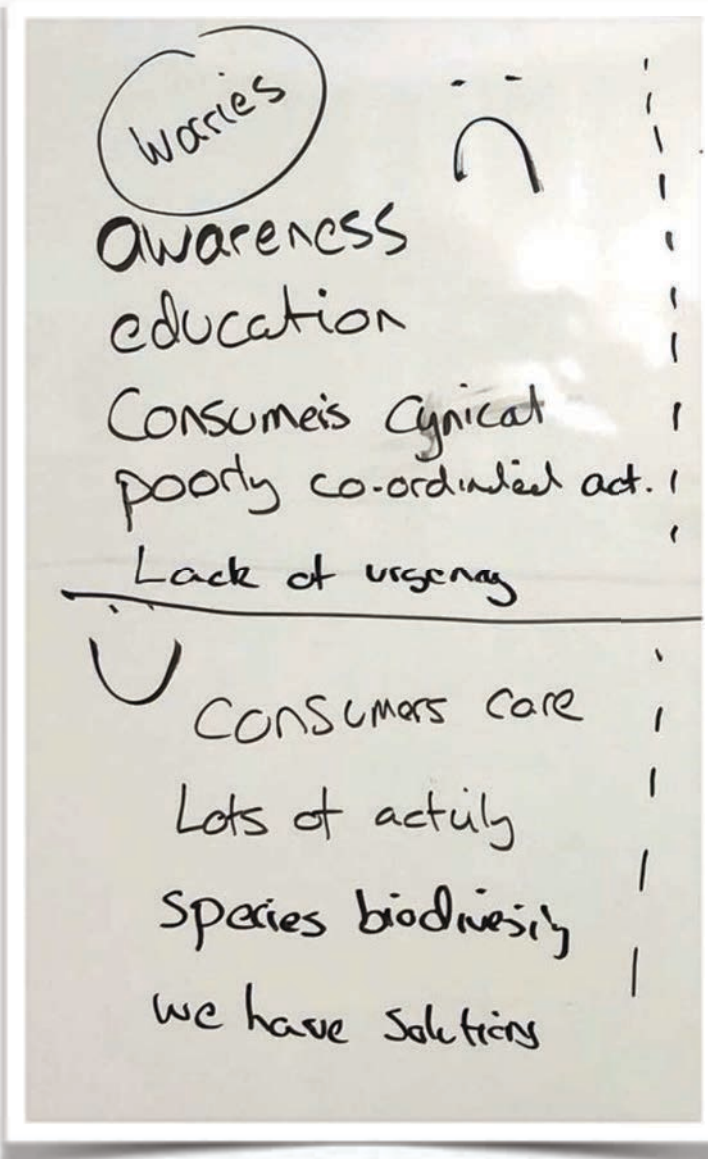 Worries
awareness
education
Consumers Cynical
poorly co-ordinated act.
Lack of urgency
Consumers care
Lots of activity
Species biodiversity
we have solutions